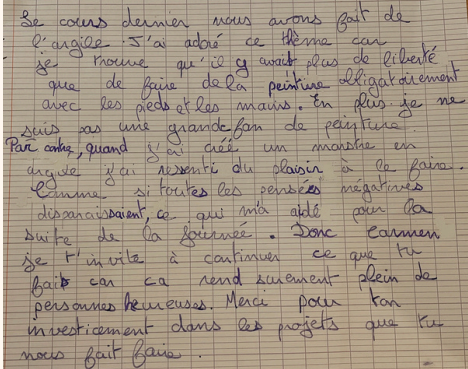 Le cours dernier nous avons fait de
l'argile. J'ai adoré ce thème car
je trouve qu'il y avait plus de liberté
que de faire de la peinture obligatoirement
avec les pieds et les mains. En plus je ne
suis pas une grande fan de peinture.
Par contre, quand j'ai créé un monstre en
argile j'ai ressenti du plaisir à le faire.
Comme si toutes les pensées négatives
disparaissaient, ce qui m'a aidé pour la
suite de la journée. Donc Carmen
je t'invite à continuer ce que tu
fais car ca rend surement plein de
personnes heureuses. Merci pour ton
investicement dans les projets que tu
nous fait faire.